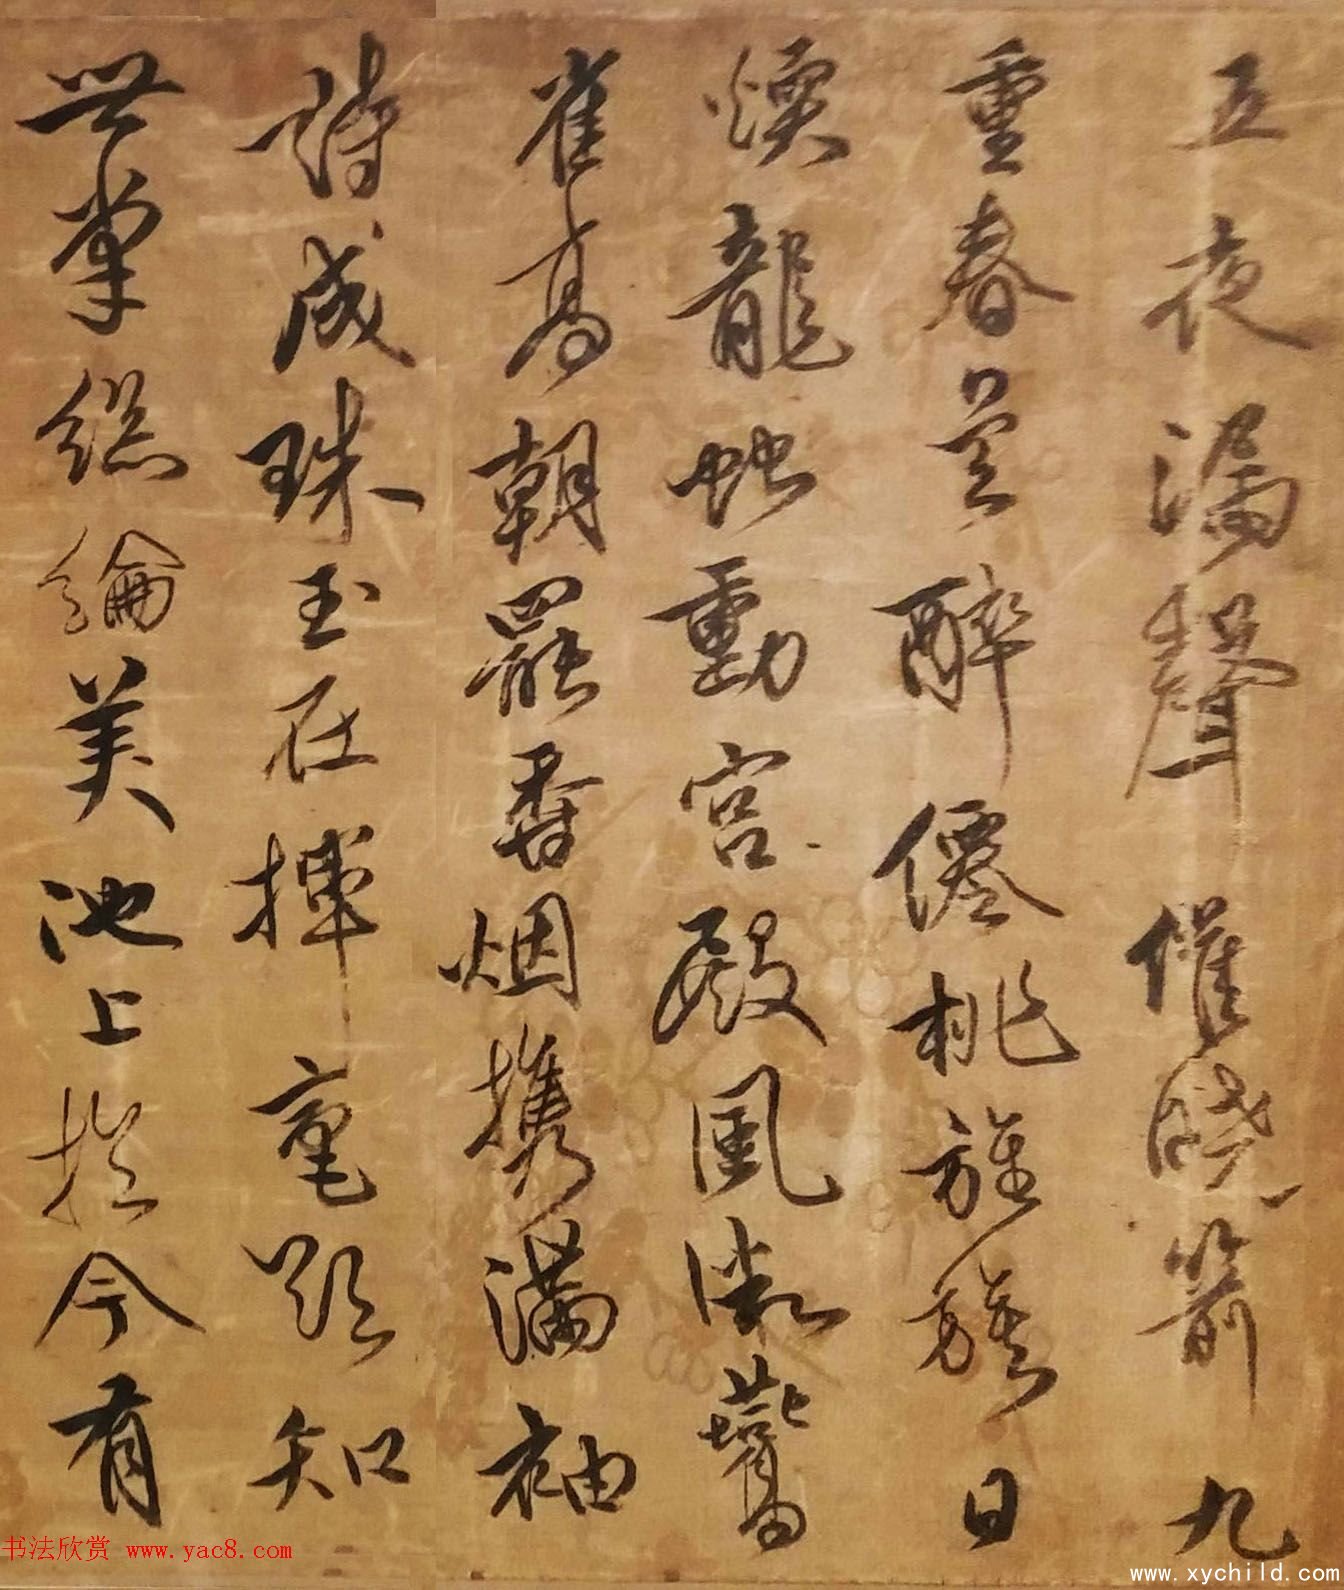 五夜漏聲催曉箭九
重春色醉僊桃旌旗日
煖龍虵動宮殿風微鷰
雀高朝罷香烟携滿袖
詩成珠玉在揮毫欲知
世掌絲綸美池上於今有
书法欣赏 www.yac8.com
www.xychild.com